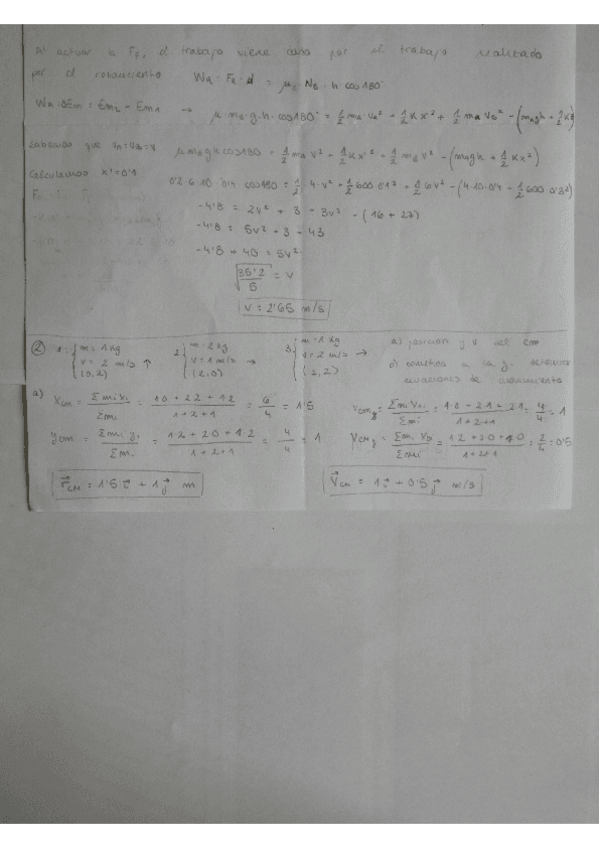 Al actuar la FR, el trabajo viene dado por el trabajo realizado
por el rozamiento WR = FR · d = μc · NB · h · cos180°
WR = ΔEm = Em2 - Em1 → μ mB · g · h · cos180° = 1/2 mA · vA² + 1/2 K x'² + 1/2 mB vB² - (mAgh + 1/2 Kx²)
Sabemos que vA = vB = v μ mB g h cos180 = 1/2 mA v² + 1/2 K x'² + 1/2 mB v² - (mAgh + 1/2 Kx²)
Calculamos x' = 0'1 0'2 · 6 · 10 · 0'4 cos180 = 1/2 · 4 · v² + 1/2 600 · 0'1² + 1/2 6v² - (4 · 10 · 0'4 + 1/2 600 0'3²)
-4'8 = 2v² + 3 + 3v² - (16 + 27)
-4'8 = 5v² + 3 - 43
-4'8 + 40 = 5v²
√35'2/5 = v
v = 2'65 m/s
② 1: { m = 1 kg v = 2 m/s ↑ (0,2) 2: { m = 2 kg v = 1 m/s → (2,0) 3: { m = 1 kg v = 2 m/s → (2,2) a) posicion y v del cm
ecuaciones de movimiento
a) Xcm = Σmi xi / Σmi = 1·0 + 2·2 + 1·2 / 1+2+1 = 6/4 = 1'5 vcmx = Σmi vxi / Σmi = 1·0 + 2·1 + 2·1 / 1+2+1 = 4/4 = 1
ycm = Σmi yi / Σmi = 1·2 + 2·0 + 1·2 / 1+2+1 = 4/4 = 1 vcmy = Σmi vyi / Σmi = 1·2 + 2·0 + 1·0 / 1+2+1 = 2/4 = 0'5
r⃗cm = 1'5 i⃗ + 1 j⃗ m v⃗cm = 1 i⃗ + 0'5 j⃗ m/s